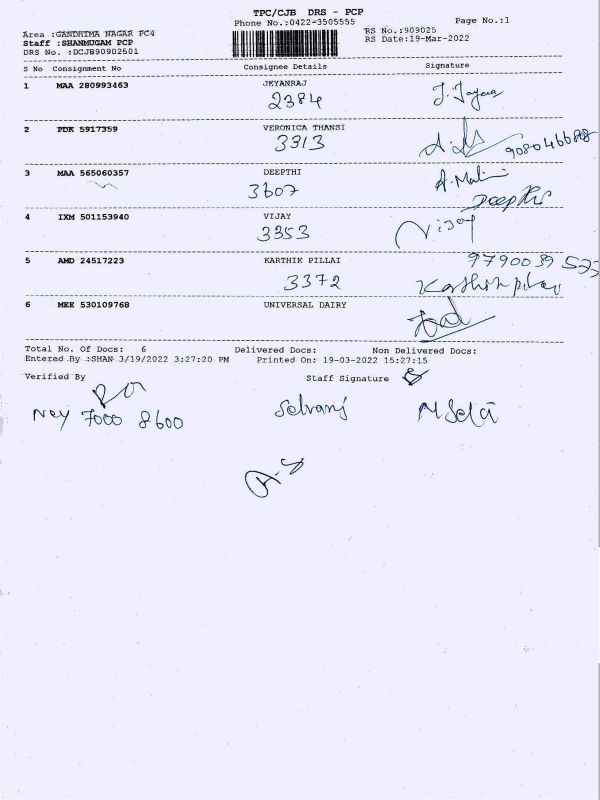 TPC/CJB DRS - PCP
Phone No.:0422-3505555 Page No.:1
Area :GANDHIMA NAGAR PC4 RS No.:909025
Staff :SHANMUGAM PCP RS Date:19-Mar-2022
DRS No. :DCJB90902501
S No Consignment No Consignee Details Signature
1 MAA 280993463 JEYANRAJ
2384 J. Jayaraj
2 PDK 5917359 VERONICA THANSI
3313 9080466808
3 MAA 565060357 DEEPTHI A.Mali
3607 Deepthi
4 IXM 501153940 VIJAY Vijay
3353
5 AMD 24517223 KARTHIK PILLAI 9790039533
3372 Karthik pillai
6 MEE 530109768 UNIVERSAL DAIRY
Total No. Of Docs: 6 Delivered Docs: Non Delivered Docs:
Entered By :SHAN 3/19/2022 3:27:20 PM Printed On: 19-03-2022 15:27:15
Verified By Staff Signature
Ney 7000 8600 Selvaraj M Selva